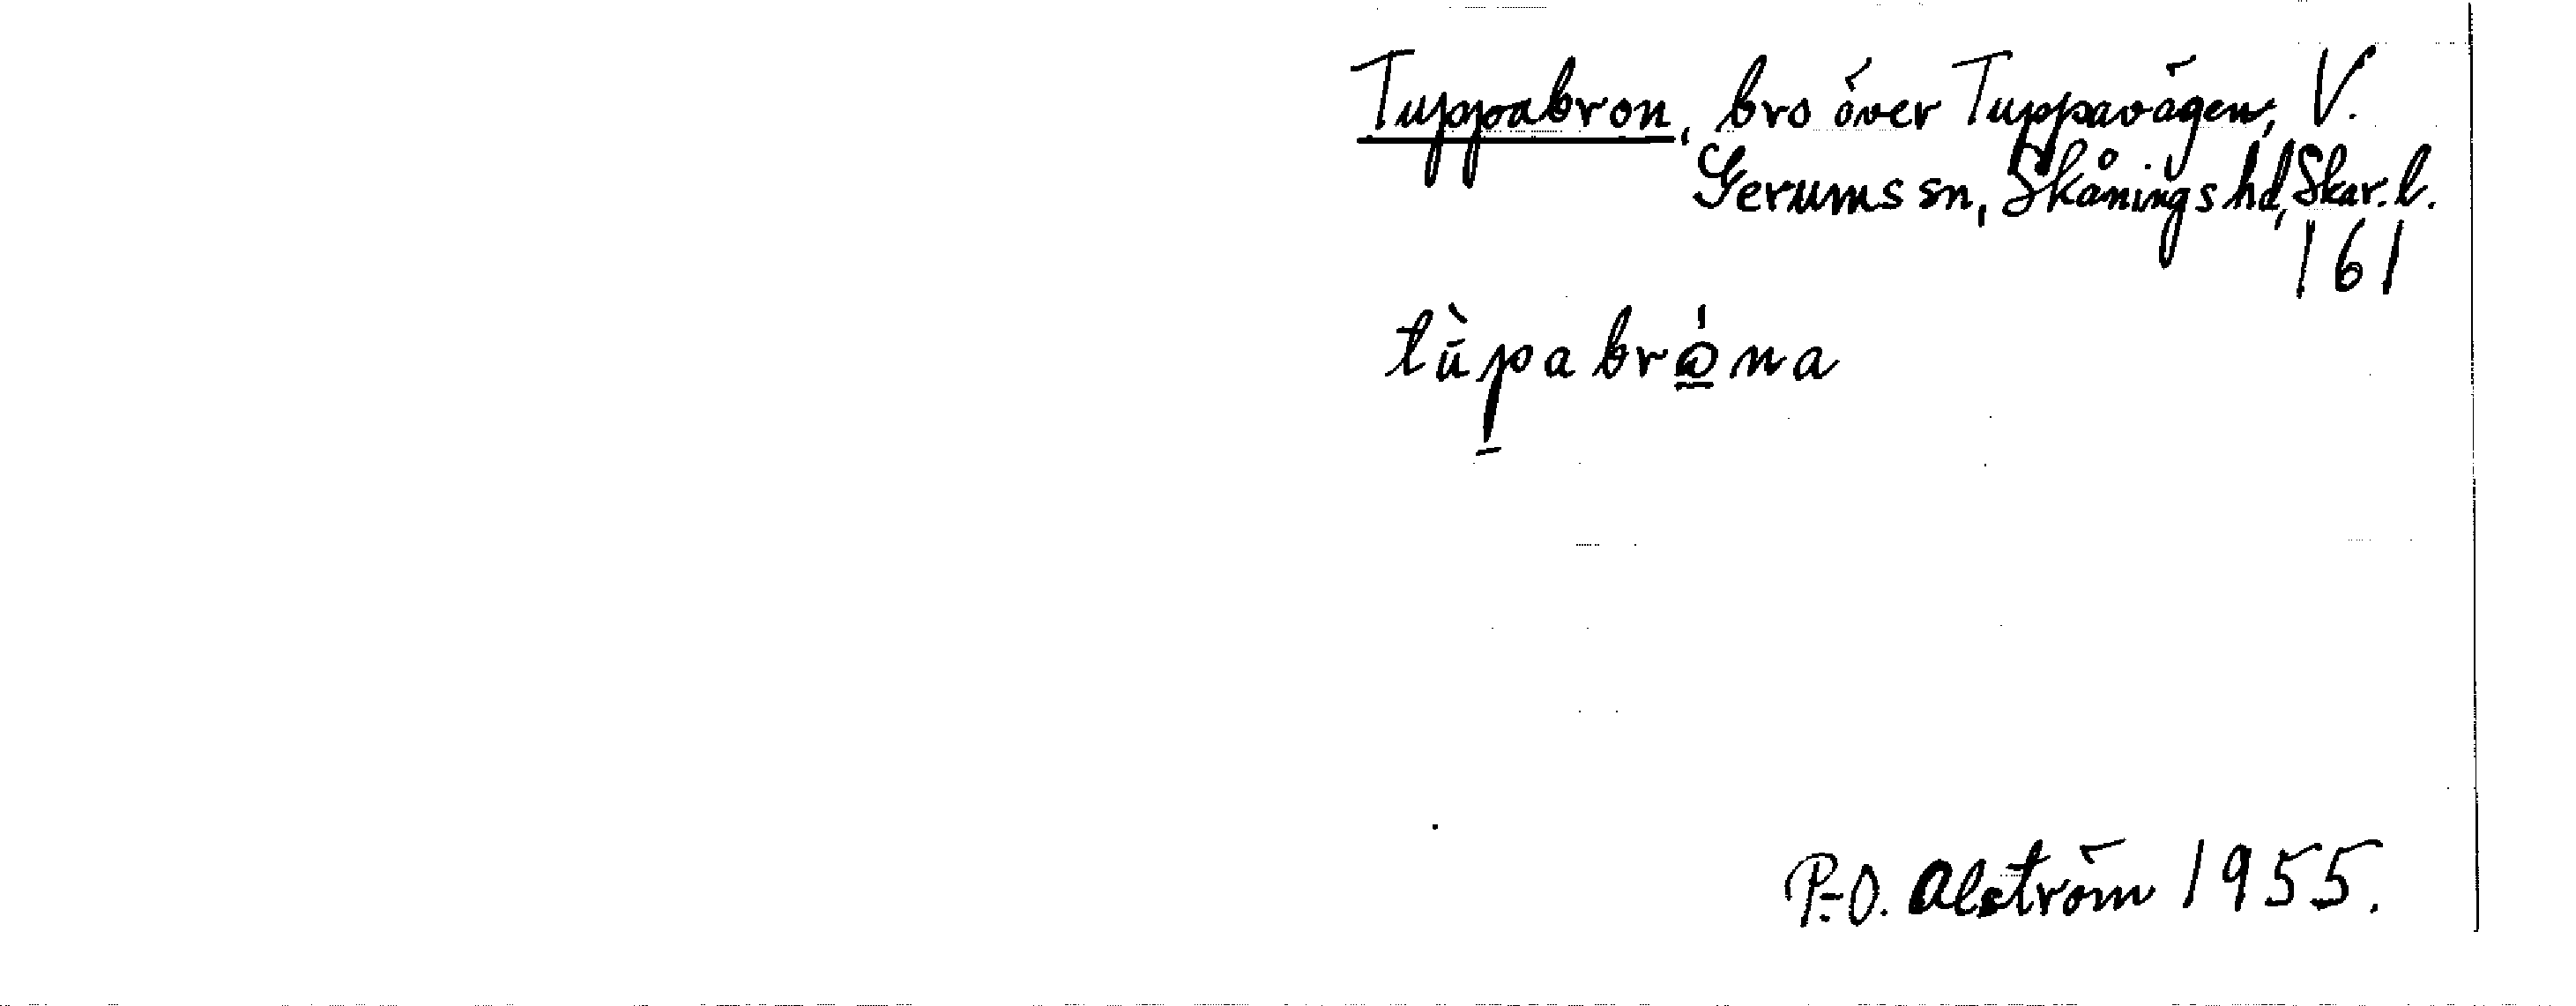 Tuppabron, bro över Tuppavägen, V.
Gerums sn, Skånings hd, Skar. l.
161
tùpabrǫ́na
P.-O. Alström 1955.